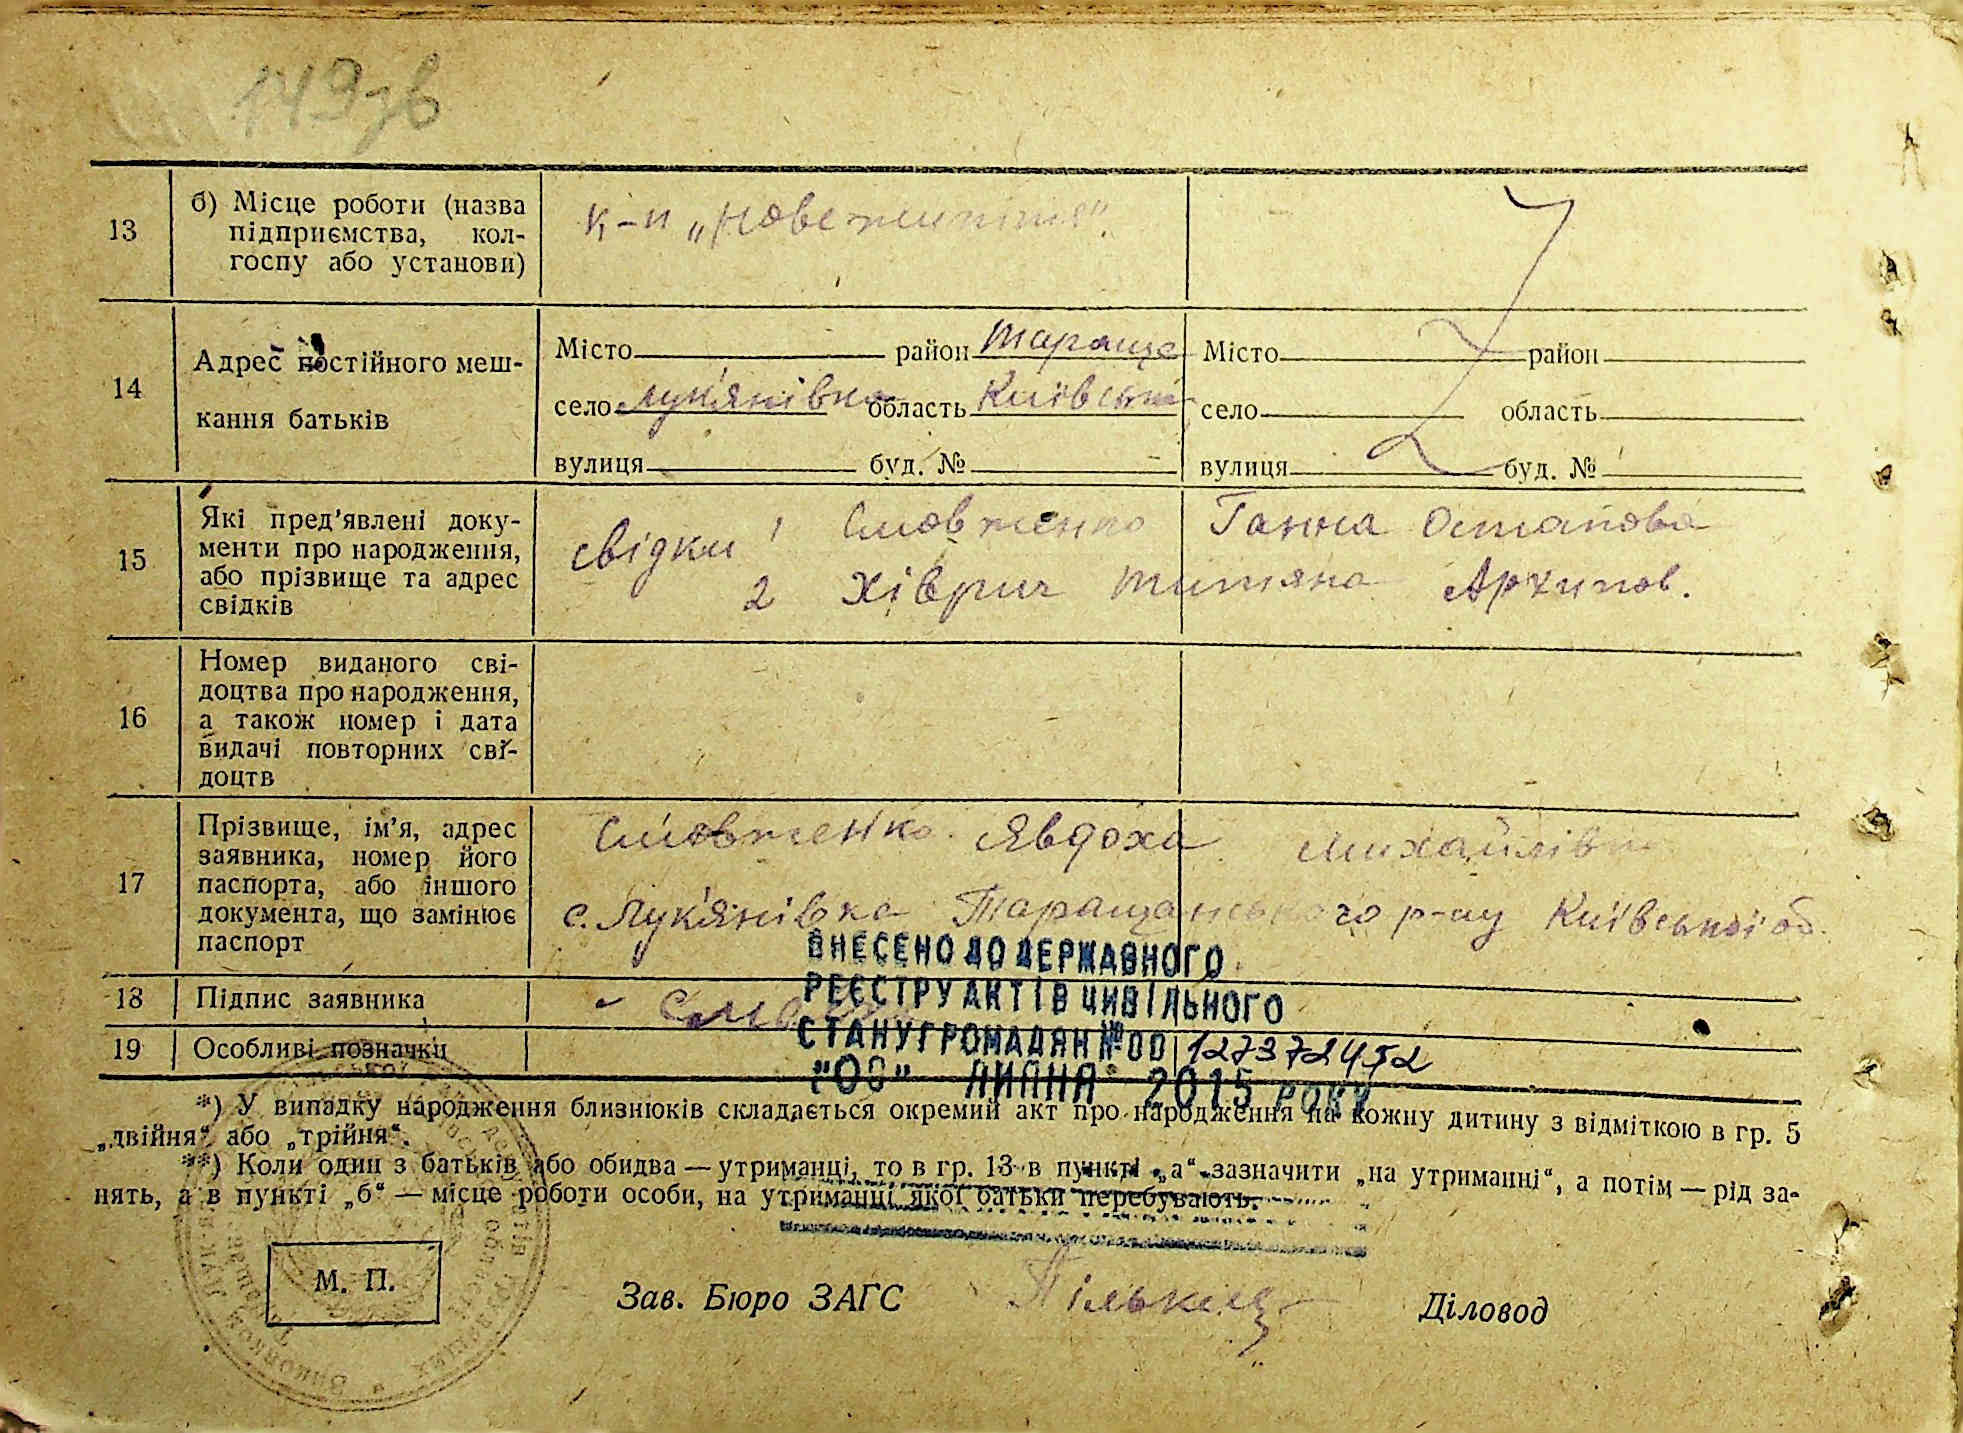 149зв
13
б) Місце роботи (назва
підприємства, кол-
госпу або установи)
к-п „Нове життя"
14
Адрес постійного меш-
кання батьків
Місто район Тараща
село Лук'янівка область Київська
вулиця буд. №
Місто район
село область
вулиця буд. №
15
Які пред'явлені доку-
менти про народження,
або прізвище та адрес
свідків
свідки 1 Ганна Остапова
2 Хіврич Титяна Архипов.
16
Номер виданого сві-
доцтва про народження,
а також номер і дата
видачі повторних сві-
доцтв
17
Прізвище, ім'я, адрес
заявника, номер його
паспорта, або іншого
документа, що замінює
паспорт
Явдоха Михайлівна
с. Лук'янівка Таращанського р-ну Київської об.
18
Підпис заявника
19
Особливі позначки
ВНЕСЕНО ДО ДЕРЖАВНОГО
РЕЄСТРУ АКТІВ ЦИВІЛЬНОГО
СТАНУ ГРОМАДЯН №00127372452
ЛИПНЯ 2015 РОКУ
*) У випадку народження близнюків складається окремий акт про народження на кожну дитину з відміткою в гр. 5
„двійня" або „трійня".
**) Коли один з батьків або обидва — утриманці, то в гр. 13 в пункті „а" зазначити „на утриманні", а потім — рід за-
нять, а в пункті „б" — місце роботи особи, на утриманні якої батьки перебувають.
М. П.
Зав. Бюро ЗАГС
Діловод